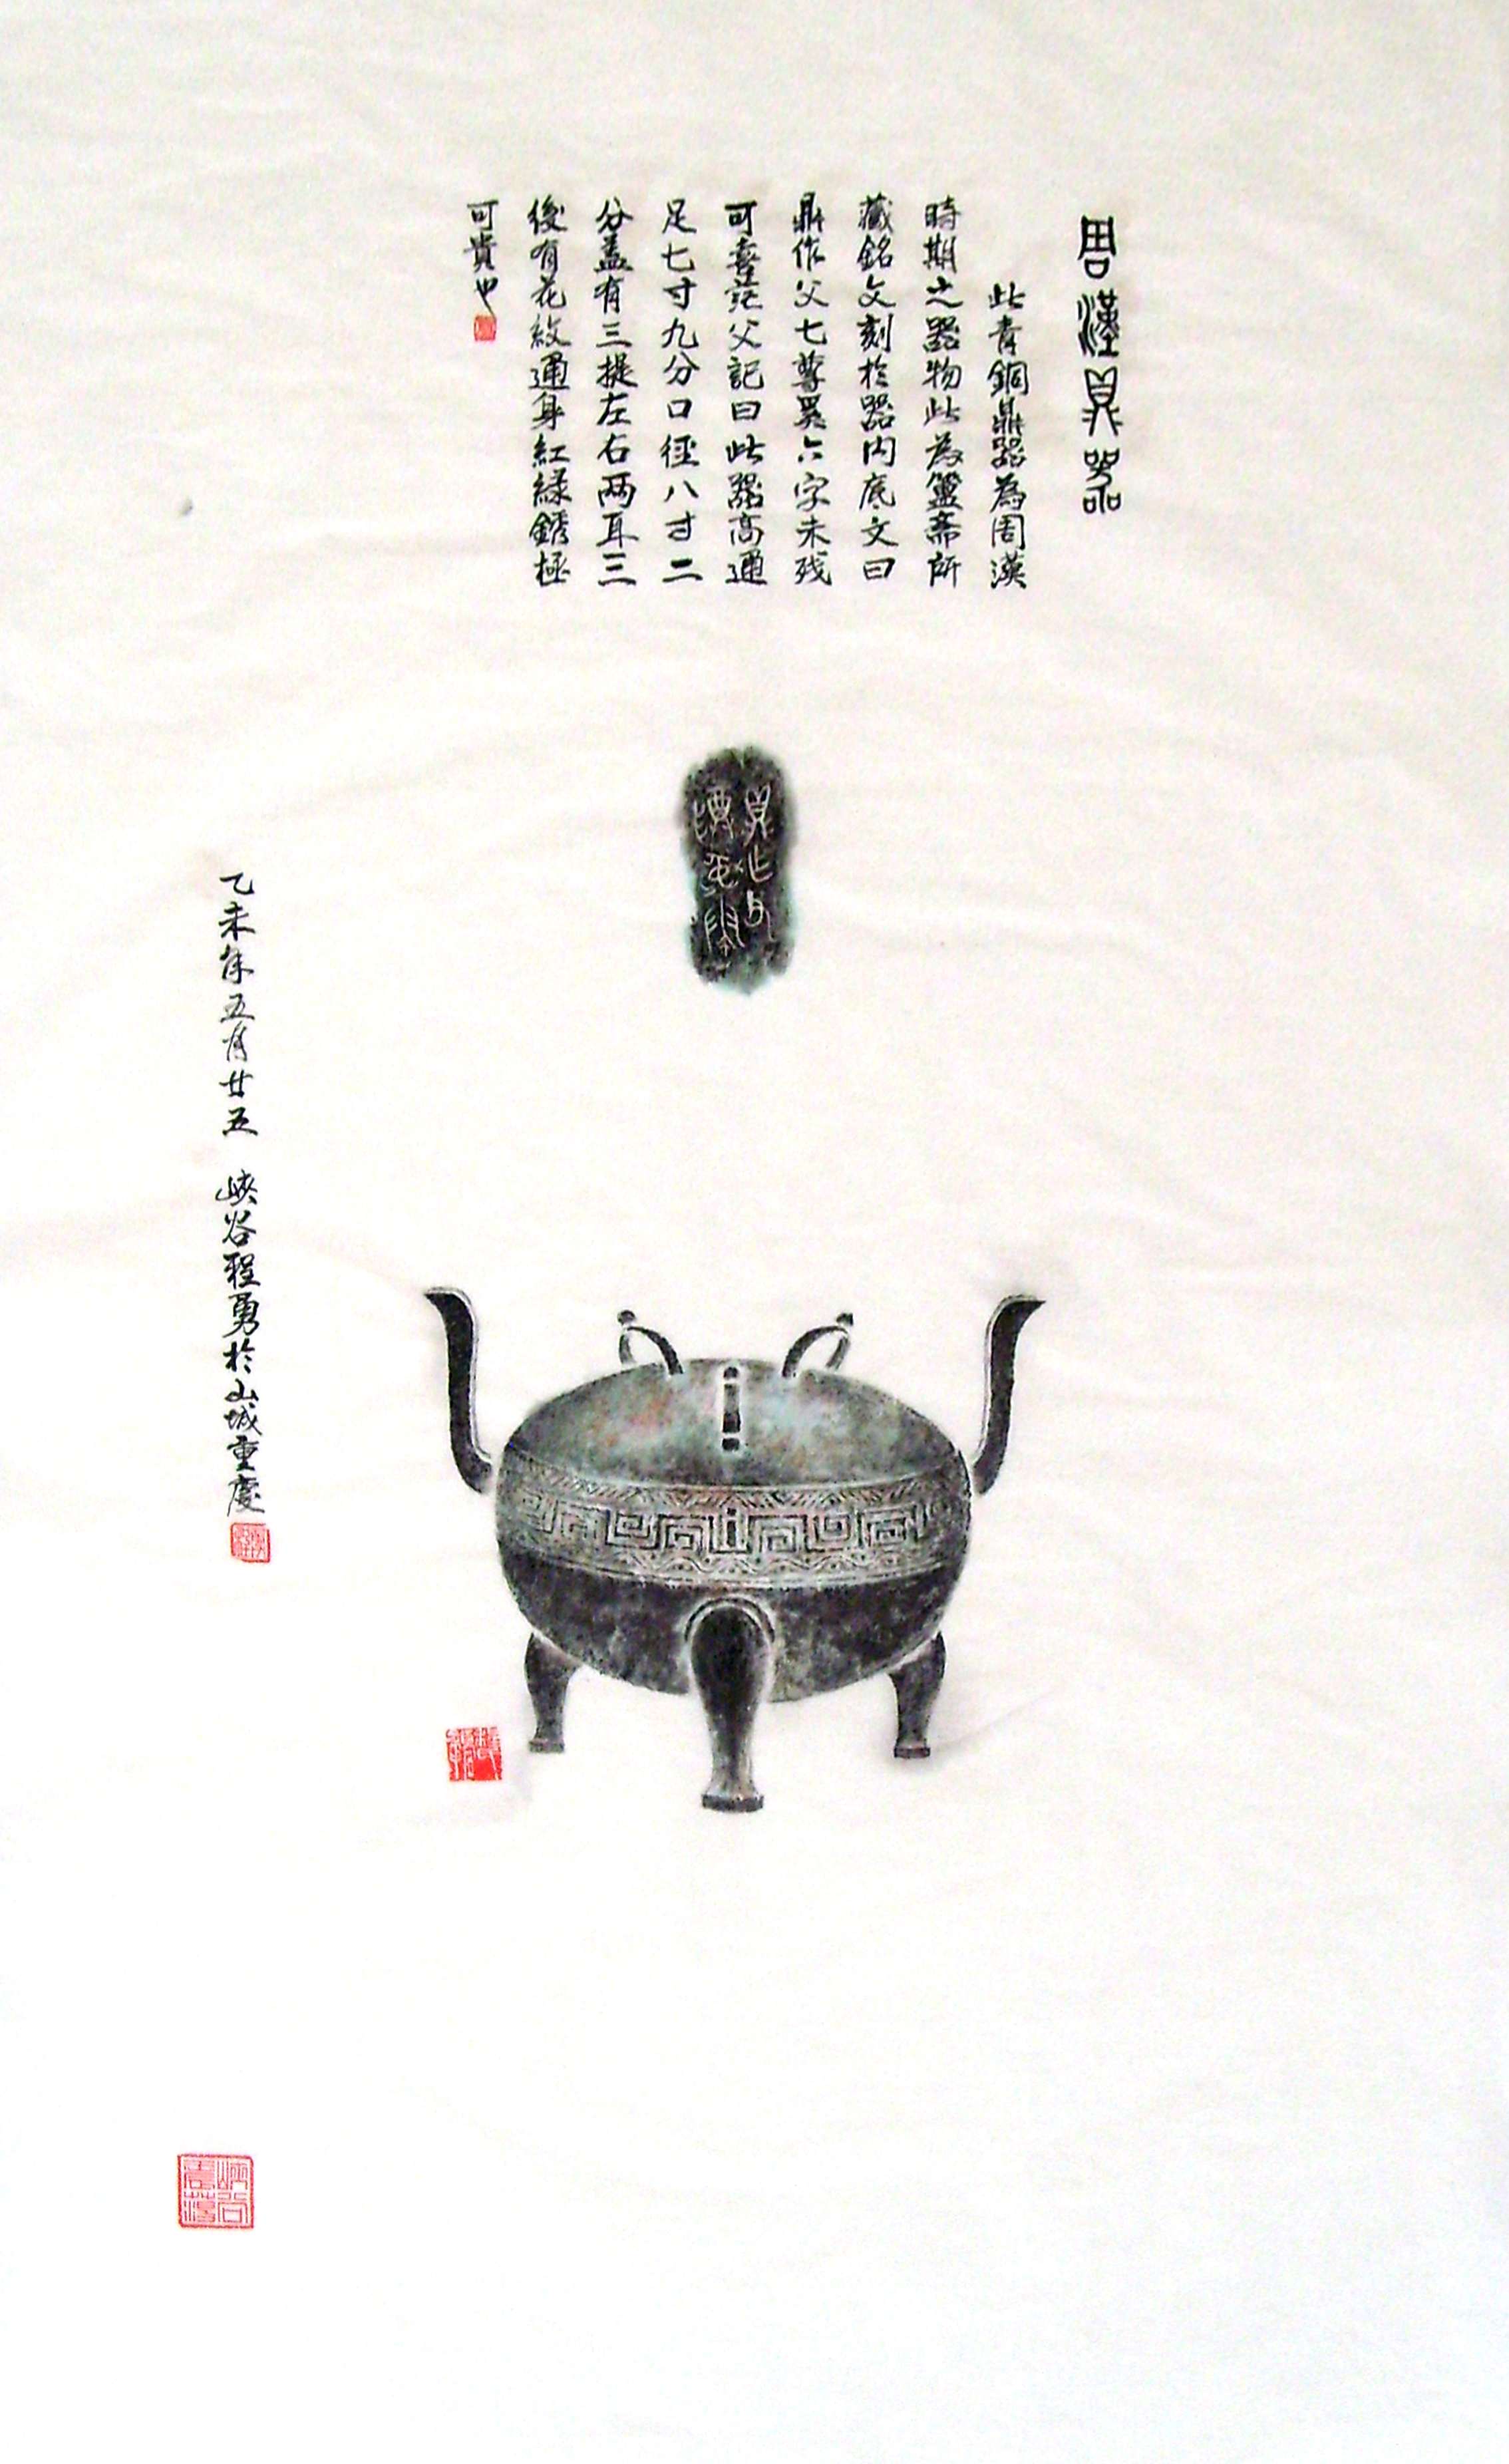 周漢鼎器
此青銅鼎器為周漢
時期之器物此為簠齋所
藏銘文刻於器内底文曰
鼎作父七尊異六字未残
可喜 父記曰此器高通
足七寸九分口徑八寸二
分蓋有三提左右两耳三
後有花紋通身紅緑銹極
可貴也
乙未年五月廿五 峽谷程勇於山城重慶